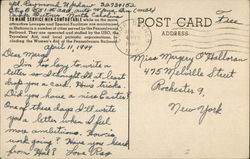 Pvt. Raymond Upham 32738152
POST CARD
Free
ADDRESS
TO MAKE SERVICE MEN COMFORTABLE while on the move,
attractive Lounges and Special Facilities are maintained
in Stations in a number of cities served by the Pennsylvania
Railroad. They are operated and staffed by the USO, the
Travelers' Aid, and local patriotic organizations, in-
cluding the Women's Aid of the Pennsylvania Railroad.
April 11, 1944
Dear Marge,
I'm too lazy to write a
letter so I thought I'd at least
send you a card. How tricks.
Did you have a nice Easter?
One of these days I'll write
you a letter when I feel
more ambitious. How is
work going? Have you heard
from Hal? Love Ray
Miss Margery O'Halloran
475 Melville Street
Rochester 9,
New York